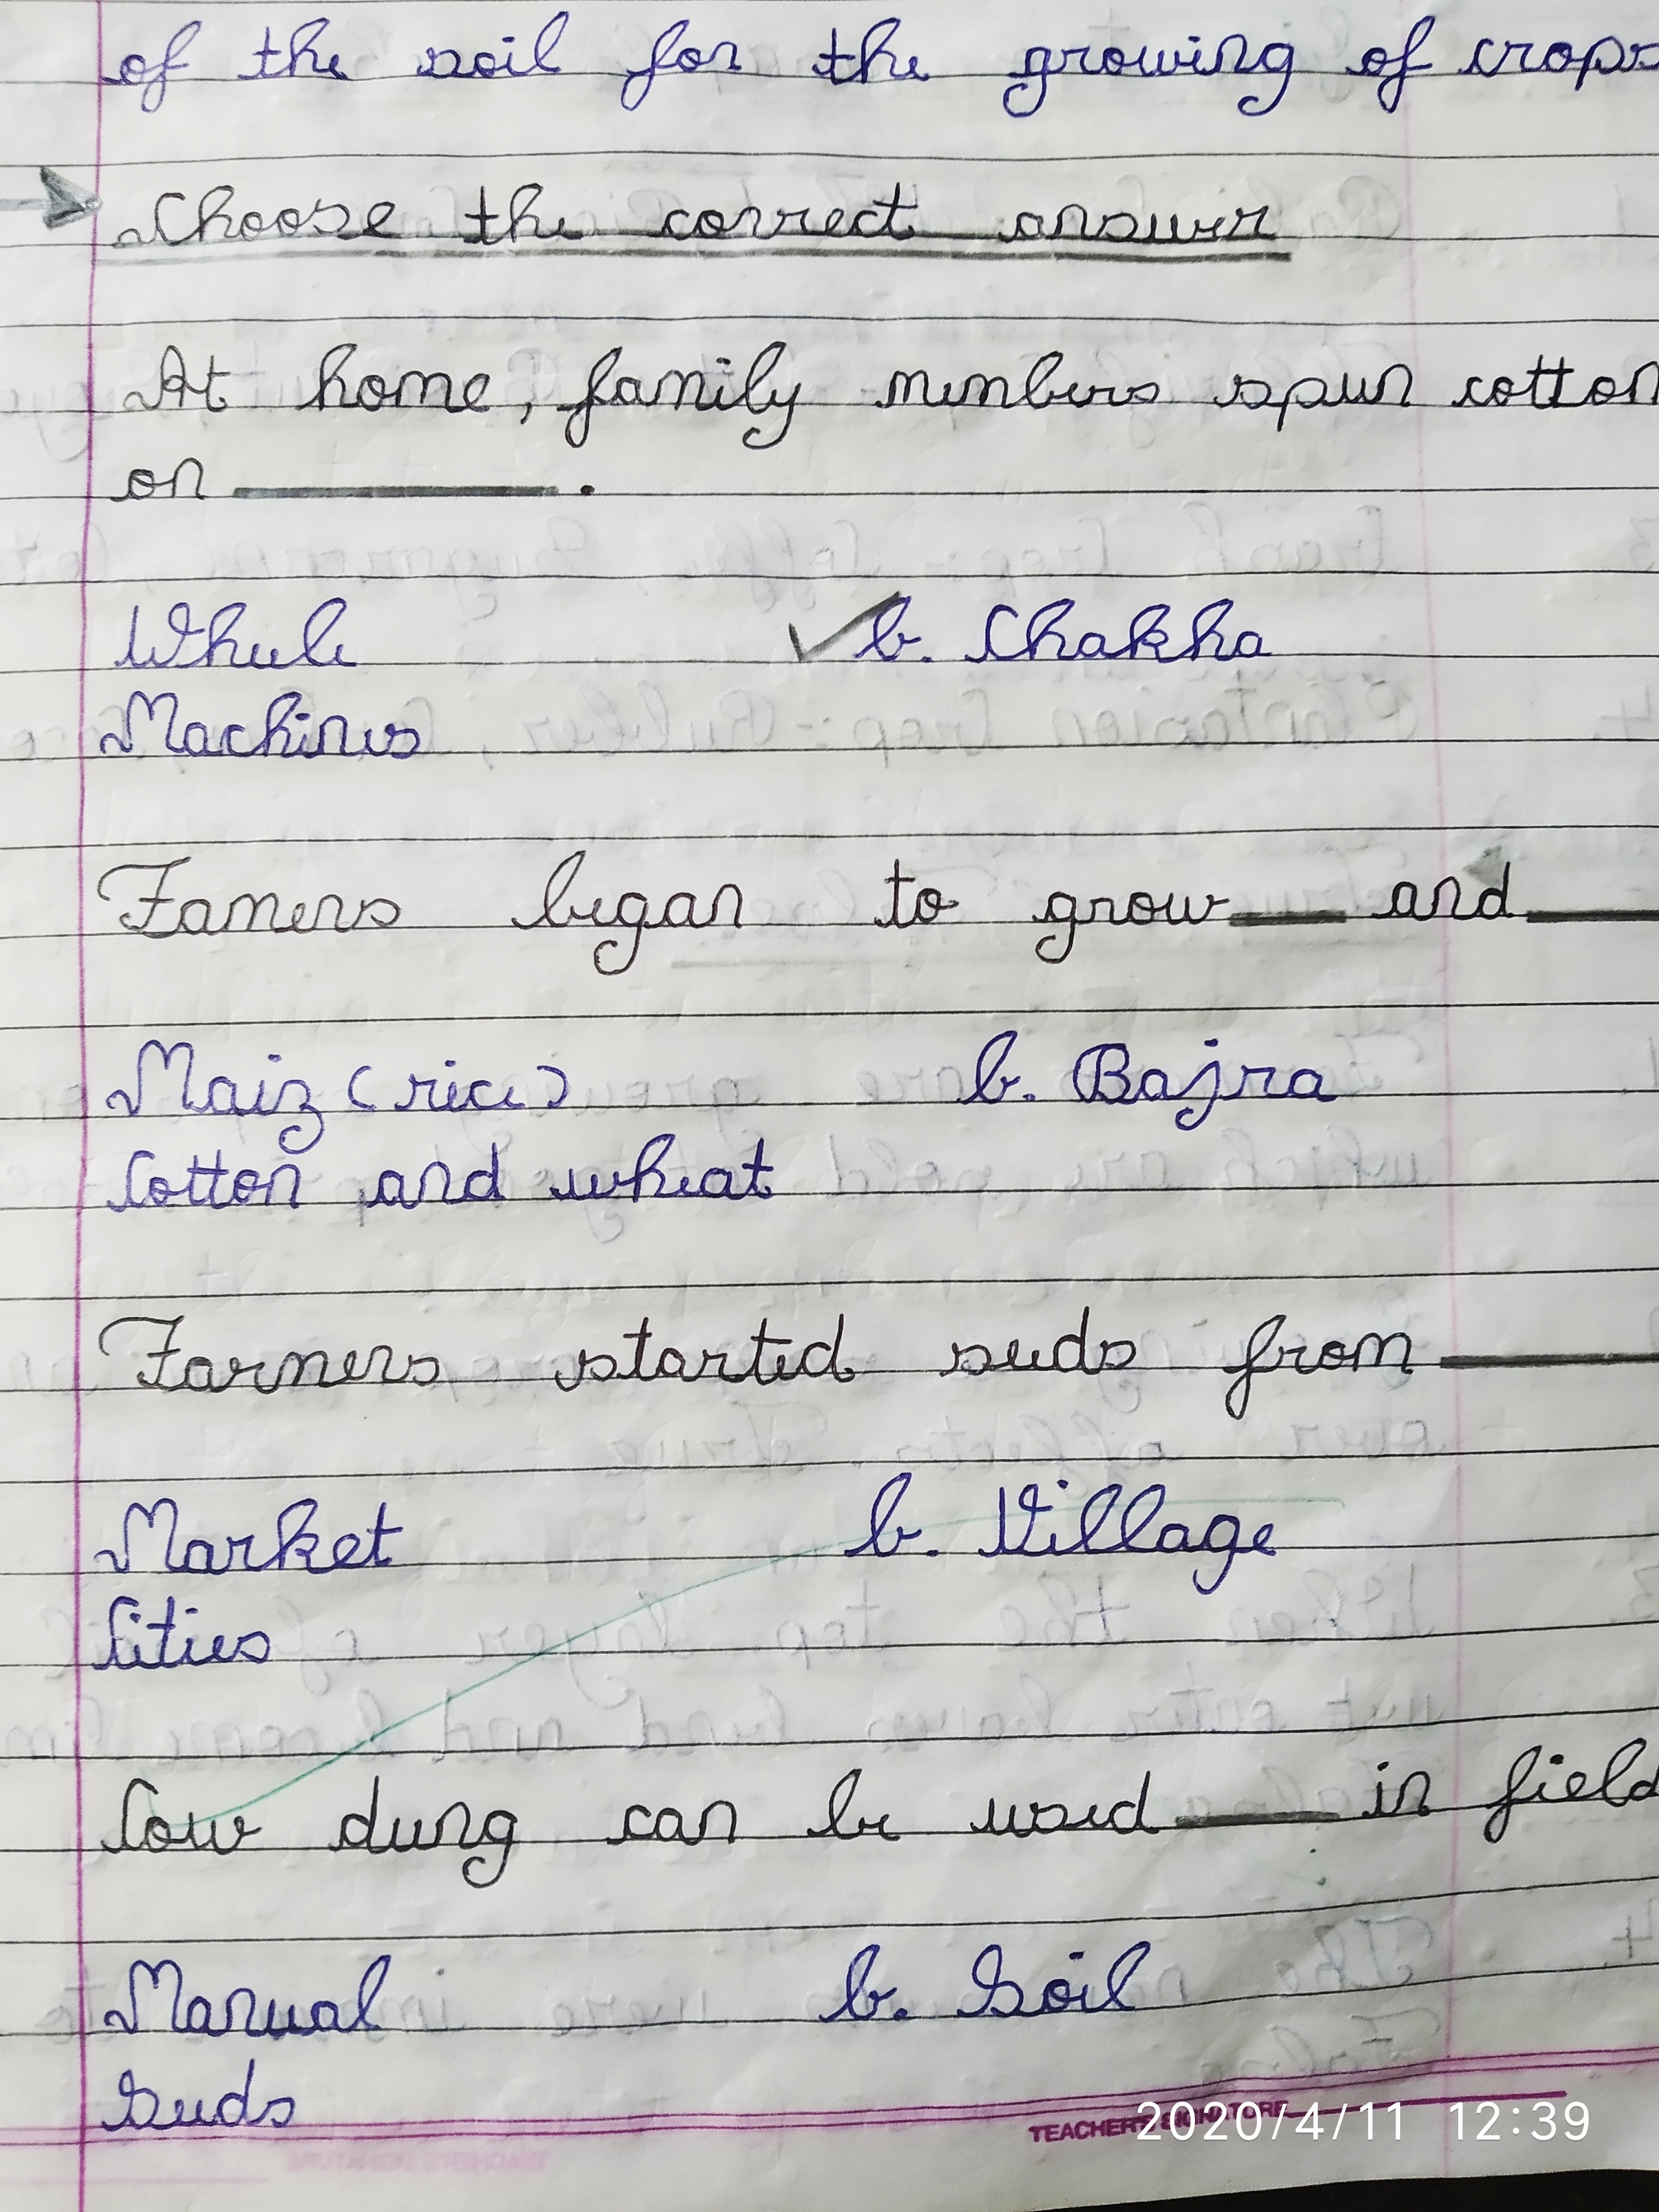 of the soil for the growing of crops
Choose the correct answer
At home, family members spun cotton
on ________ .
Wheele b. Chakha
Machines
Famers began to grow ____ and ____
Maiz (rice) b. Bajra
Cotton and wheat
Farmers started seeds from ____
Market b. Village
Cities
Cow dung can be used ____ in field
Manual b. Soil
Seeds
TEACHER'S SIGNATURE
2020/4/11 12:39